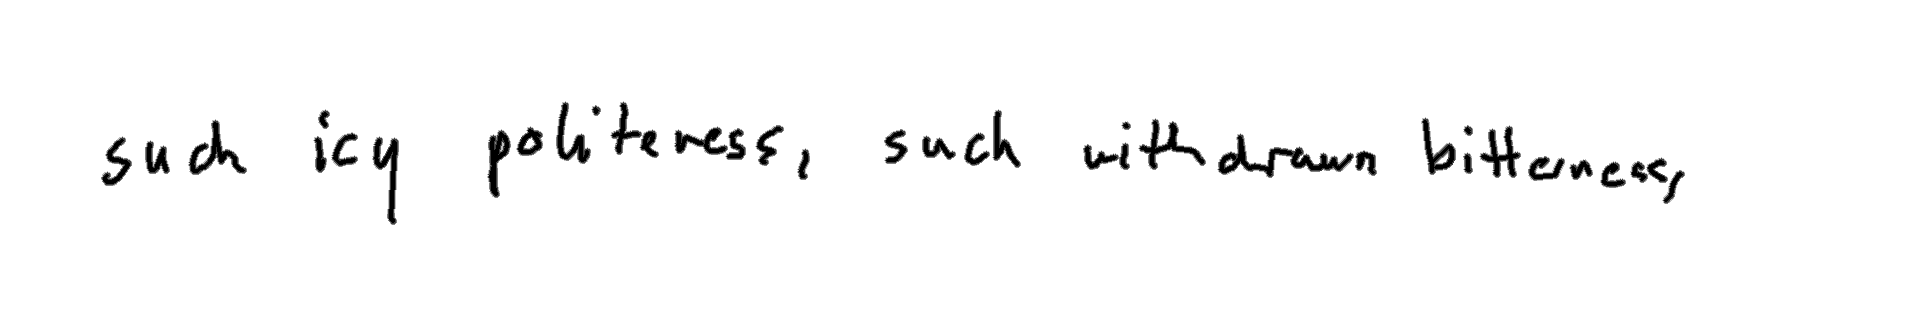 such icy politeness, such withdrawn bitterness,